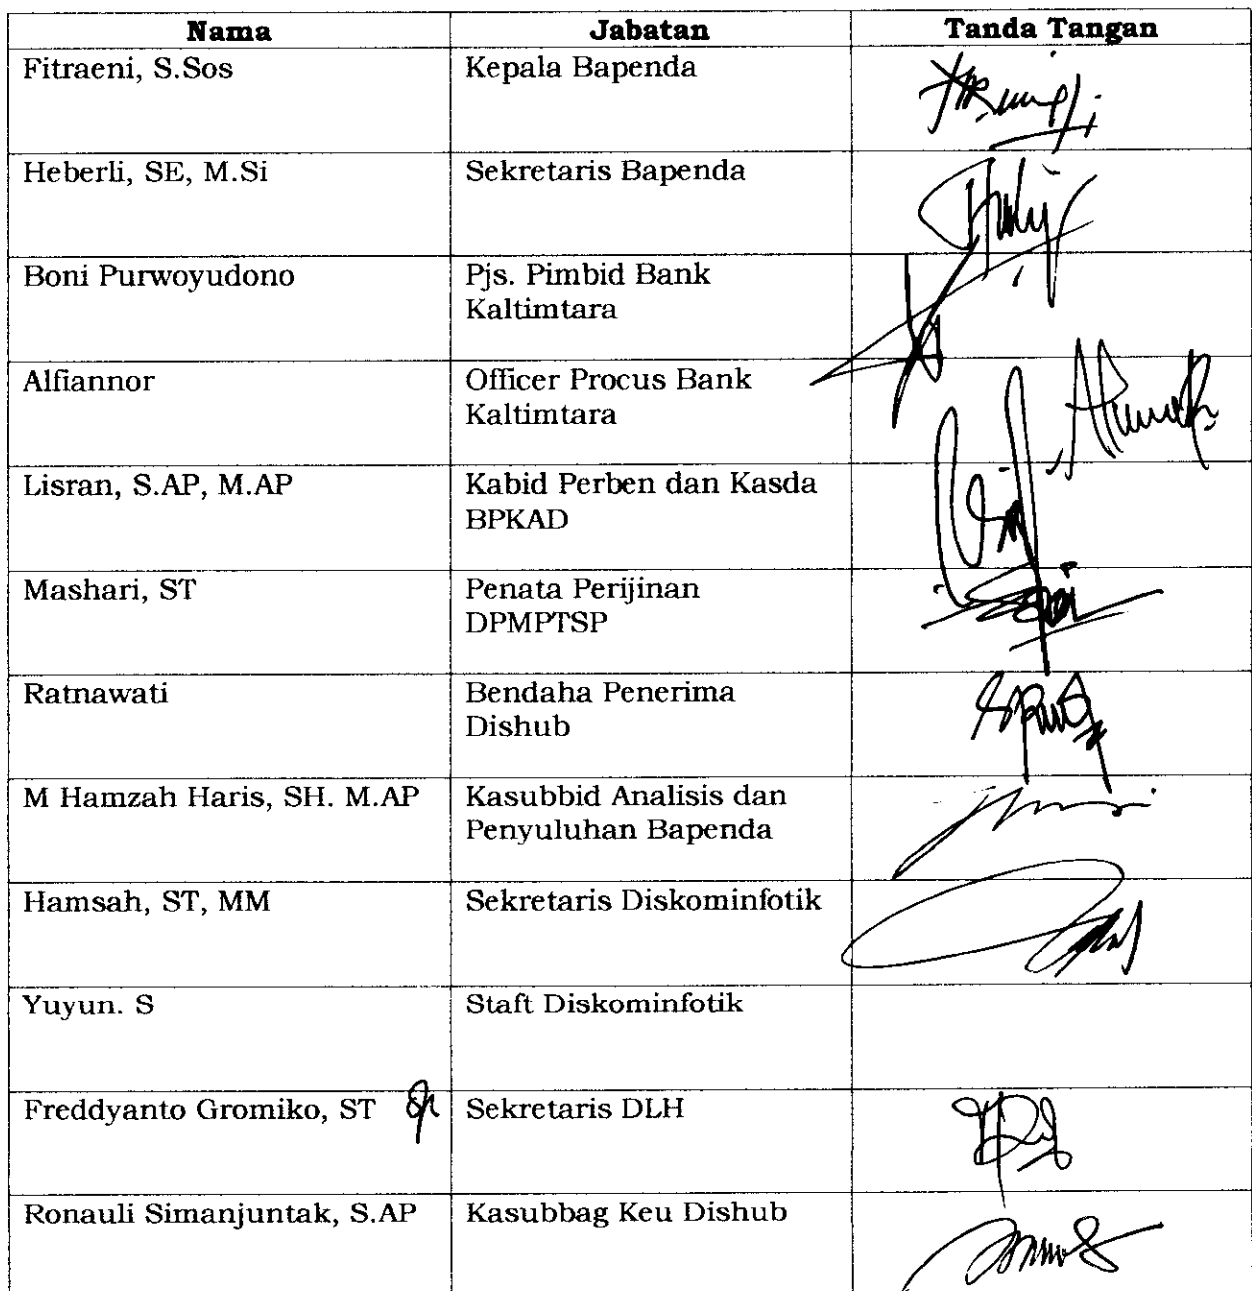 Nama Jabatan Tanda Tangan
Fitraeni, S.Sos Kepala Bapenda
Heberli, SE, M.Si Sekretaris Bapenda
Boni Purwoyudono Pjs. Pimbid Bank
Kaltimtara
Alfiannor Officer Procus Bank
Kaltimtara
Lisran, S.AP, M.AP Kabid Perben dan Kasda
BPKAD
Mashari, ST Penata Perijinan
DPMPTSP
Ratnawati Bendaha Penerima
Dishub
M Hamzah Haris, SH. M.AP Kasubbid Analisis dan
Penyuluhan Bapenda
Hamsah, ST, MM Sekretaris Diskominfotik
Yuyun. S Staft Diskominfotik
Freddyanto Gromiko, ST Sekretaris DLH
Ronauli Simanjuntak, S.AP Kasubbag Keu Dishub